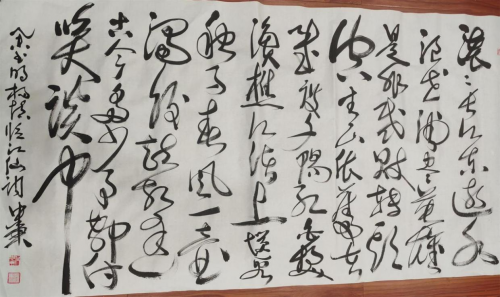 滚滚长江东逝水
浪花淘尽英雄
是非成败转头
空青山依旧在
几度夕阳红白发
渔樵江渚上惯看
秋月春风一壶
浊酒喜相逢
古今多少事都付
笑谈中
书明杨慎临江仙词